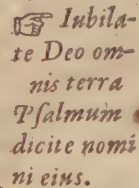 ☞ Iubila-
te Deo om-
nis terra
Pſalmum
dicite nomi
ni eius.